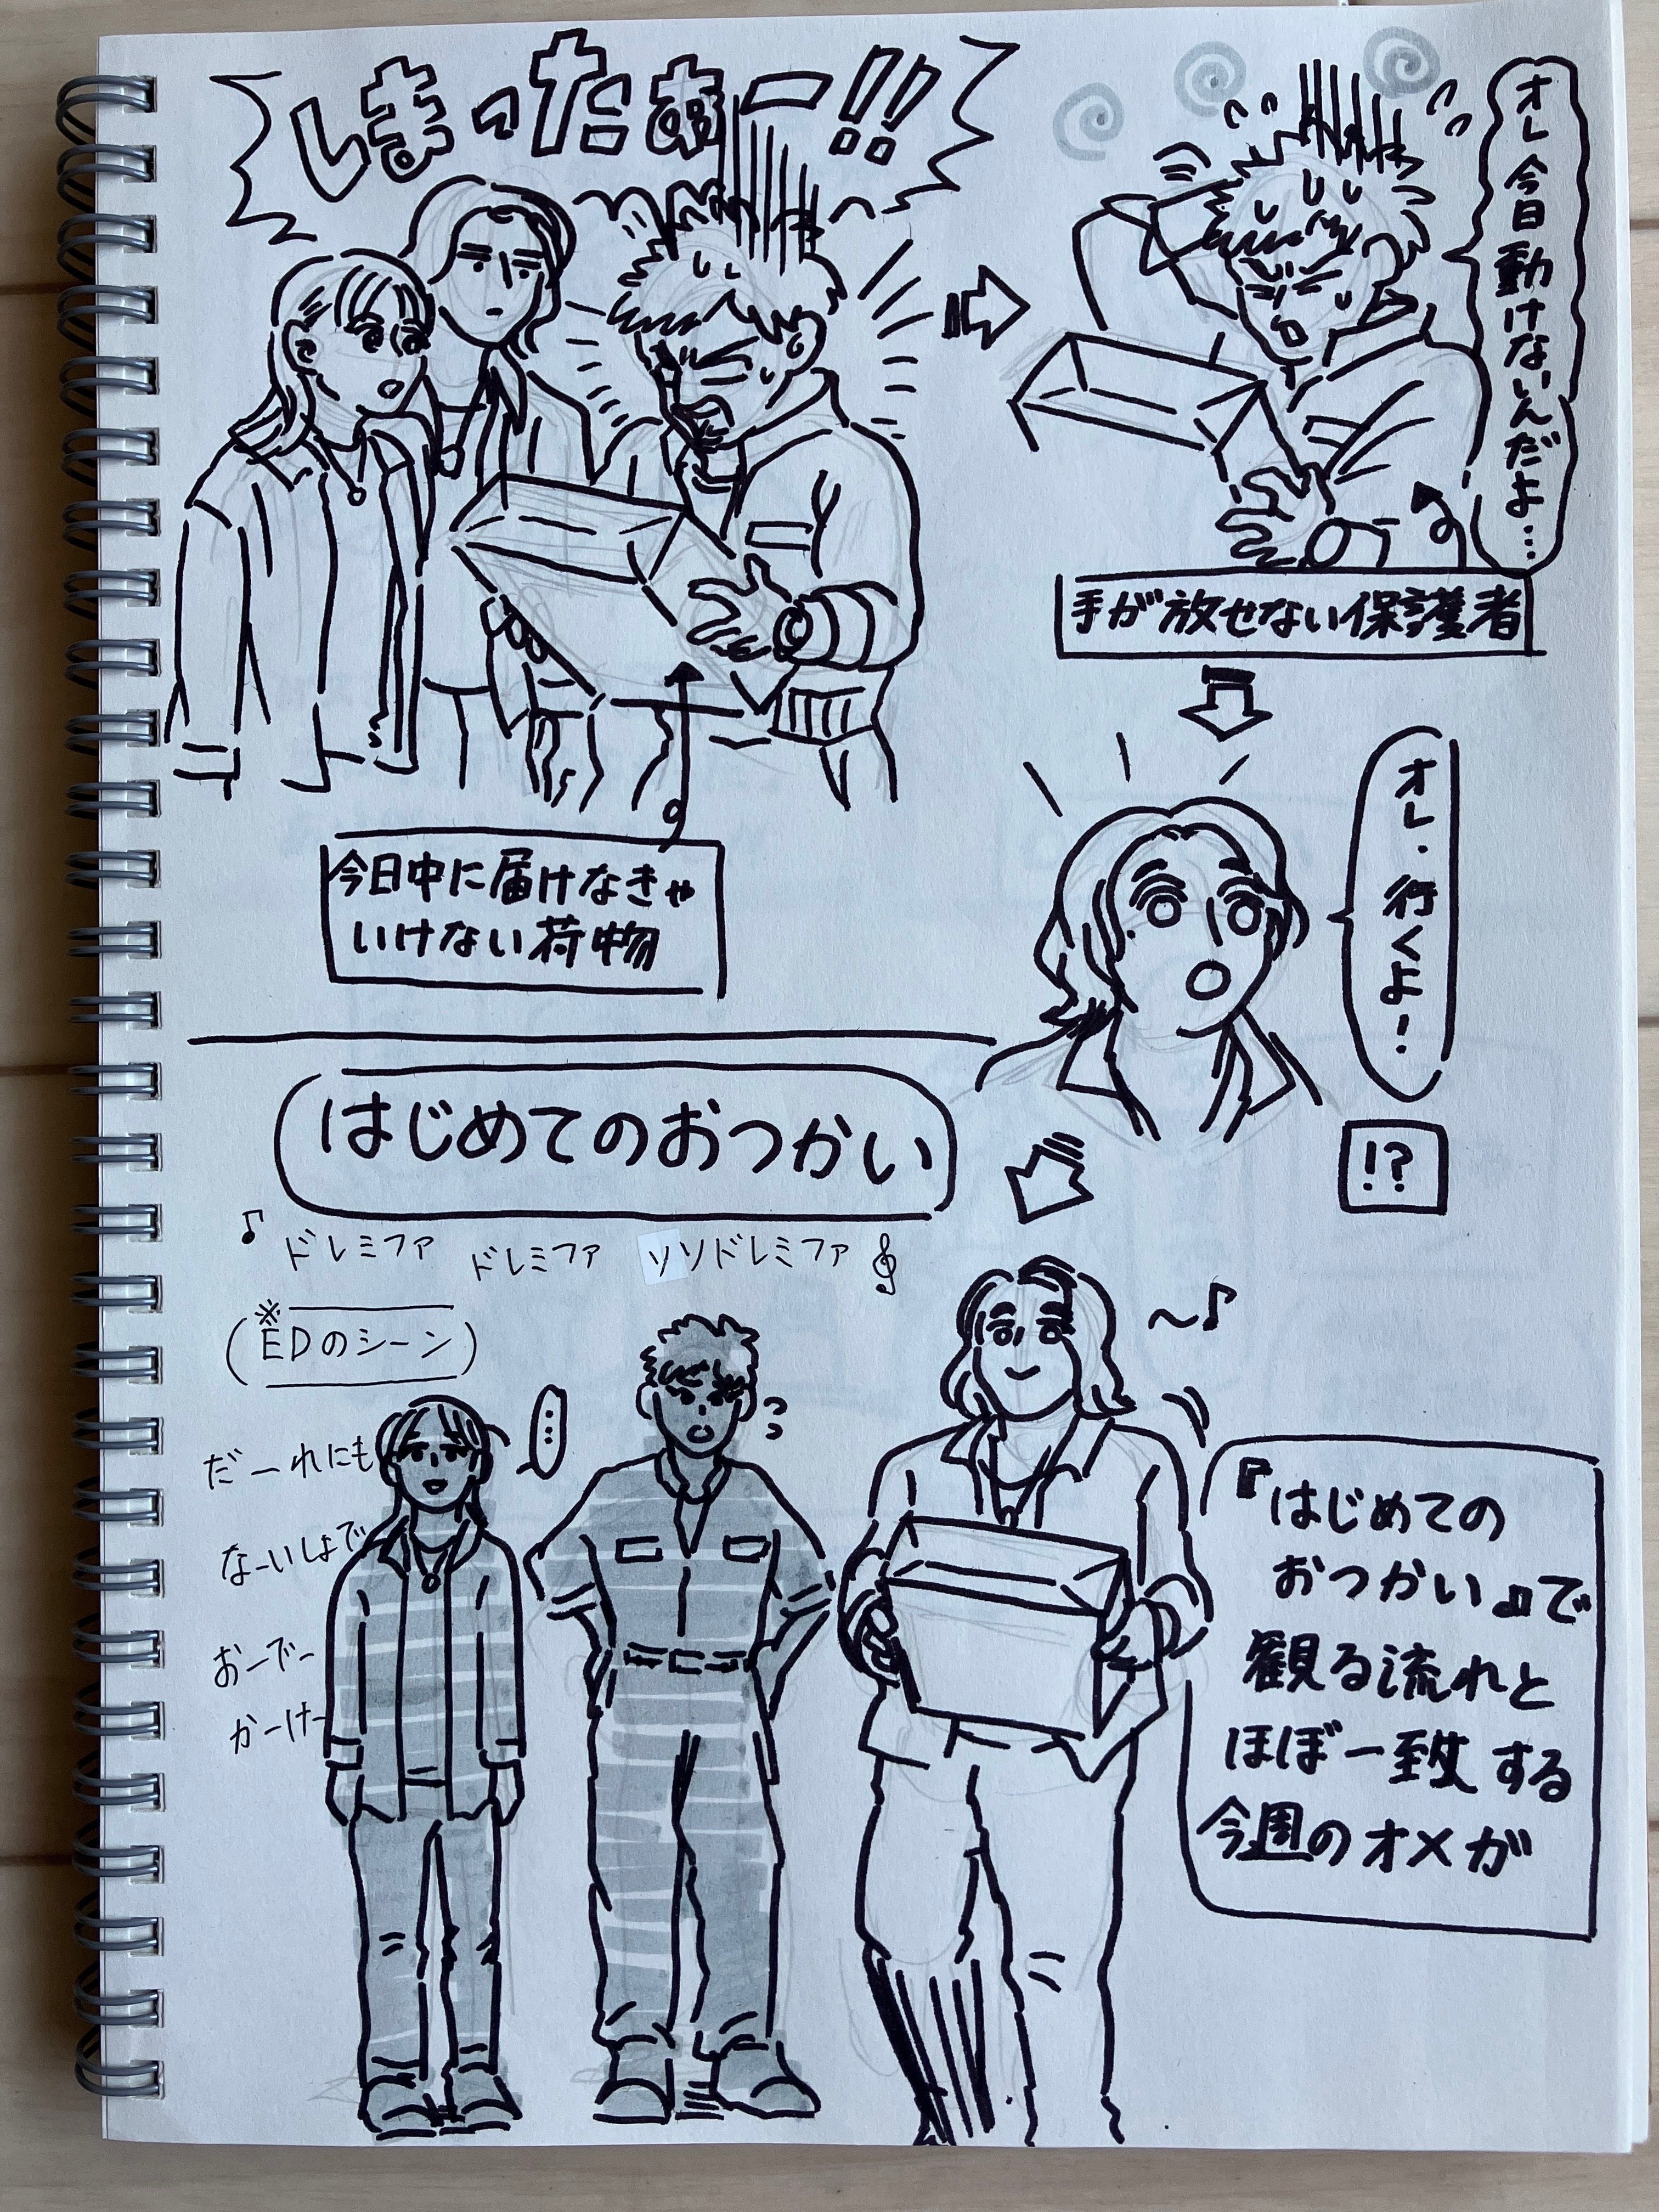 しまったぁー!!
オレ今日動けないんだよ…
手が放せない保護者
今日中に届けなきゃ
いけない荷物
オレ、行くよ!
!?
はじめてのおつかい
♪ドレミファ ドレミファ ソソドレミファ𝄞
(※EDのシーン)
…
~♪
だーれにも
なーいしょで
おーでー
かーけー
『はじめての
おつかい』で
観る流れと
ほぼ一致する
今週のオメガ